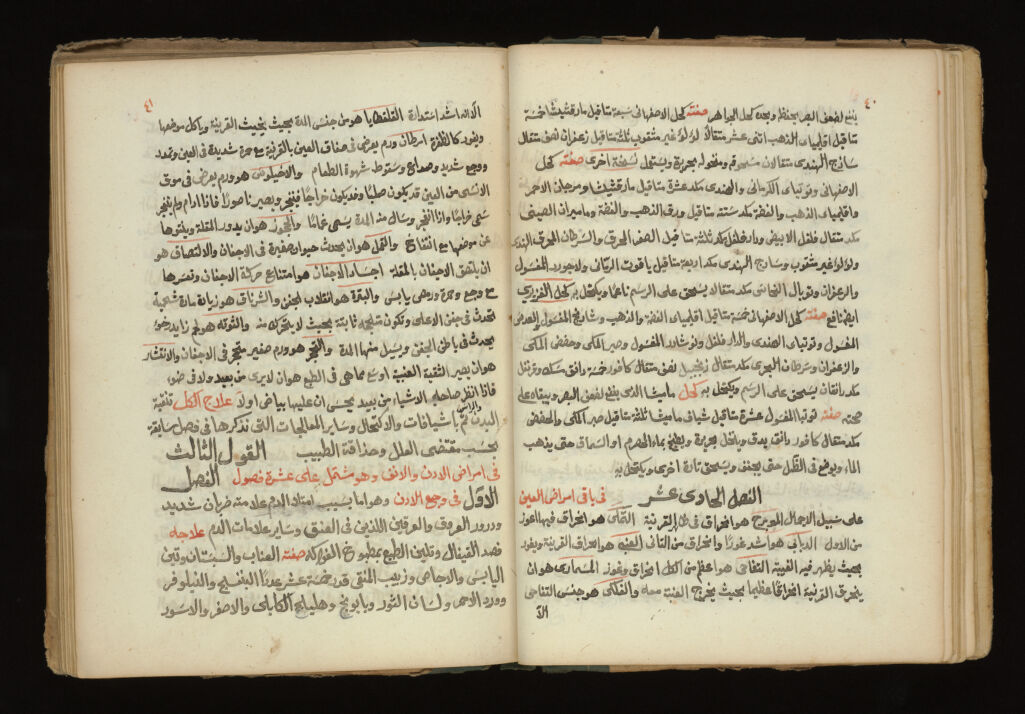 ٤٠
ينفع لضعف البصر يحفظ وحده كحل الجواهر صفته كحل الاصفهاني سبعة مثاقيل مارقشيثا خمسة
مثاقيل اقليمياء الذهب اثنى عشر مثقالا لؤلؤ غير مثقوب ثلثة مثاقيل زعفران نصف مثقال
ساذج الهندي مثقالان مسحوقة ومنخولة بحريرة ويستعمل نسخة اخرى صفته كحل
الاصفهاني وتوتياى الكرماني والهندي مكد عشرة مثاقيل مارقشيثا ومرجان الاحمر
واقليمياى الذهب والفضة مكد ستة مثاقيل ورق الذهب والفضة وماميران الصيني
مكد مثقال فلفل الابيض ودار فلفل مكد ثلثة مثاقيل الصدف المحرق والسرطان المحرق الهندي
ولؤلؤ غير مثقوب وساذج الهندي مكد اربعة مثاقيل ياقوت الرماني ولاجورد المغسول
والزعفران وتوبال النحاس مكد مثقالا يسحق على الرسم ناعما ويكتحل به كحل العزيزي
ايضا نافع صفته كحل الاصفهاني خمسة مثاقيل اقليمياى الفضة والذهب وشاذنج المغسول والعدس
المغسول وتوتياى الهندي والدار فلفل ونوشادر المغسول وصبر المكي وحضض المكي
والزعفران وسرطان البحري مكد مثقال زنجبيل نصف مثقال كافور خمسة دانق مسك وقرنفل
مكد دانقان يسحق على الرسم ويكتحل به كحل ماميثا الذي ينفع لضعف البصر ويبقاه على
صحته صفته توتيا المغسول عشرة مثاقيل شياف ماميثا ثلثة مثاقيل صبر المكي والحضض
مكد مثقال كافور دانق يدق وينخل بحريرة ويطبخ بماء الحصرم او السماق حتى يذهب
الماء ويوضع في الظل حتى يجفف ويسحق تارة اخرى ويكتحل به
الفصل الحادى عشر في باقى امراض العين
على سبيل الاجمال المورسرج هو انخراق في طبقة القرنية النملى هو انخراق فيها اغور
من الاول الذبابى هو اشد غورا وانخراق من الثاني العنبى هو انخراق القرنية ويغور
بحيث يظهر فيه العنبية التفاحى هو اعظم من الكل انخراق وغور المسمارى هو ان
ينخرق القرنية انخراقا عظيما بحيث يخرج العنبة معه والفلكى هو جنس التفاحى
الا
٤١
الا انه اشد استدارة القلقطايا هو من جنس المدة بحيث بخبث القرنية وياكل موضعها
ويغور كالظفرة السرطان ورم يعرض في صفاق العين بالقرنية مع حمرة شديدة في العين وتمدد
ووجع شديد وصداع وسقوط شهوة الطعام والاخيلوس هو ورم يعرض في موق
الانسى من العين قد يكون صلبا وقد يكون خراجا فينفجر ويصير ناصورا فاذا ادام ولم ينفجر
سمى خراجا واذا انفجر وسال منه المدة يسمى غمامًا والجحوز هو ان يدور المقلة ويلتوها
عن موضعها مع انتفاخ والقمل هو ان يحدث حيوان صغيرة في الاجفان والالتصاق هو
ان يلتصق الاجفان بالمقلة اجساء الاجفان هو امتناع حركة الاجفان وتعسرها
مع وجع وحمرة ورمص يابس والشترة هو انقلاب الجفن والشرناق هو زيادة مادة شحمية
تحدث في جفن الاعلى وتكون متلجمة ثابتة بحيث لا يتحرك منه والتوته هو لحم زايد رخو
يحدث في باطن الجفن ويسيل منها المدة والتحجر هو ورم صغير متحجر في الاجفان والانتشار
هو ان يصير الثقبة العنبية اوسع مما هى في الطبع هو ان لا يرى من بعيد ولا في ضوء
فاذا انظر صاحبه الاشياء من بعيد يحس ان عليها بياض اولا علاج الكل تنقية
البدن والراس ثم بالشيافات والاكتحال وساير المعالجات التى نذكرها في فصل سابقة
بحسب مقتضى العلل وحذاقة الطبيب القول الثالث
في امراض الاذن والانف وهو مشتمل على عشرة فصول الفصل
الاول في وجع الاذن وهو اما بسبب امتلاء الدم علامته ضربان شديد
ودرور العروق والعرقين اللذين في العنق وساير علامات الدم علاجه
فصد القيفال وتليين الطبع بمطبوخ الفواكه صفته العناب والسبستان وتين
اليابس والاجاص وزبيب المنقى قدر خمسة عشر عددا البنفسج والنيلوفر
وورد الاحمر ولسان الثور وبابونج وهليلج الكابلى والاصفر والاسود